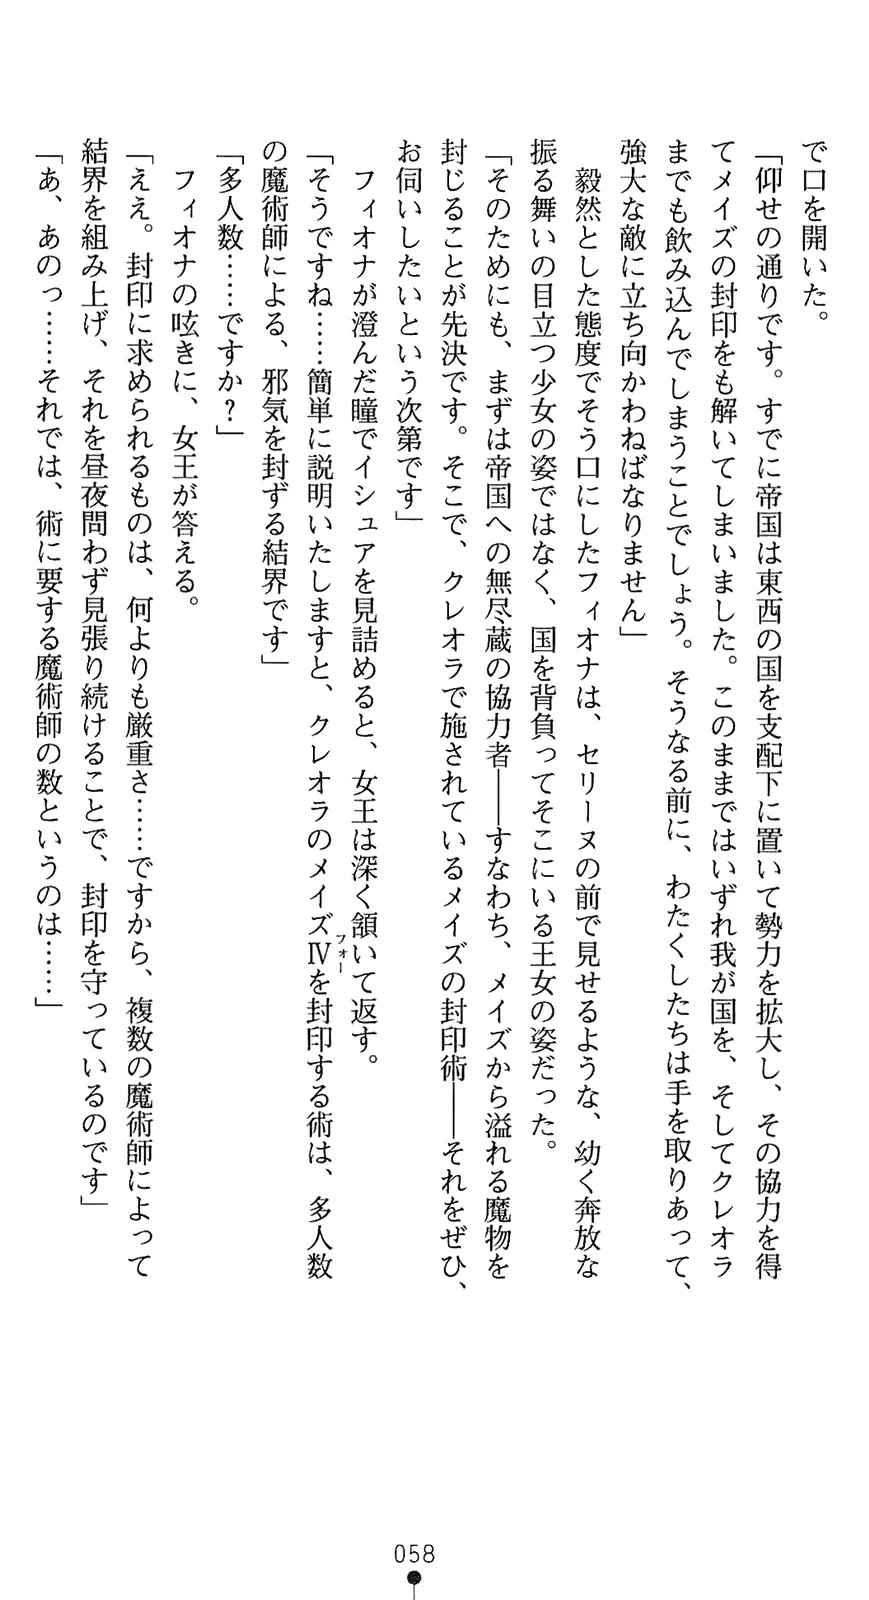 で口を開いた。
「仰せの通りです。すでに帝国は東西の国を支配下に置いて勢力を拡大し、その協力を得
てメイズの封印をも解いてしまいました。このままではいずれ我が国を、そしてクレオラ
までも飲み込んでしまうことでしょう。そうなる前に、わたくしたちは手を取りあって、
強大な敵に立ち向かわねばなりません」
　毅然とした態度でそう口にしたフィオナは、セリーヌの前で見せるような、幼く奔放な
振る舞いの目立つ少女の姿ではなく、国を背負ってそこにいる王女の姿だった。
「そのためにも、まずは帝国への無尽蔵の協力者――すなわち、メイズから溢れる魔物を
封じることが先決です。そこで、クレオラで施されているメイズの封印術――それをぜひ、
お伺いしたいという次第です」
　フィオナが澄んだ瞳でイシュアを見詰めると、女王は深く頷いて返す。
「そうですね……簡単に説明いたしますと、クレオラのメイズⅣフォーを封印する術は、多人数
の魔術師による、邪気を封ずる結界です」
「多人数……ですか？」
　フィオナの呟きに、女王が答える。
「ええ。封印に求められるものは、何よりも厳重さ……ですから、複数の魔術師によって
結界を組み上げ、それを昼夜問わず見張り続けることで、封印を守っているのです」
「あ、あのっ……それでは、術に要する魔術師の数というのは……」
058